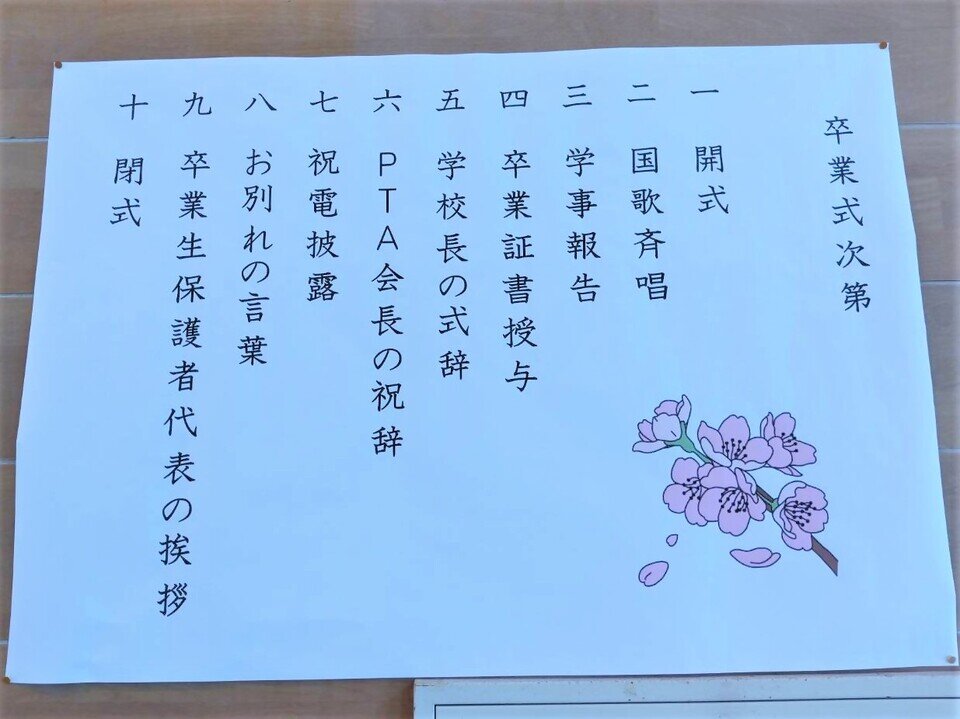 卒業式次第
一 開式
二 国歌斉唱
三 学事報告
四 卒業証書授与
五 学校長の式辞
六 PTA会長の祝辞
七 祝電披露
八 お別れの言葉
九 卒業生保護者代表の挨拶
十 閉式